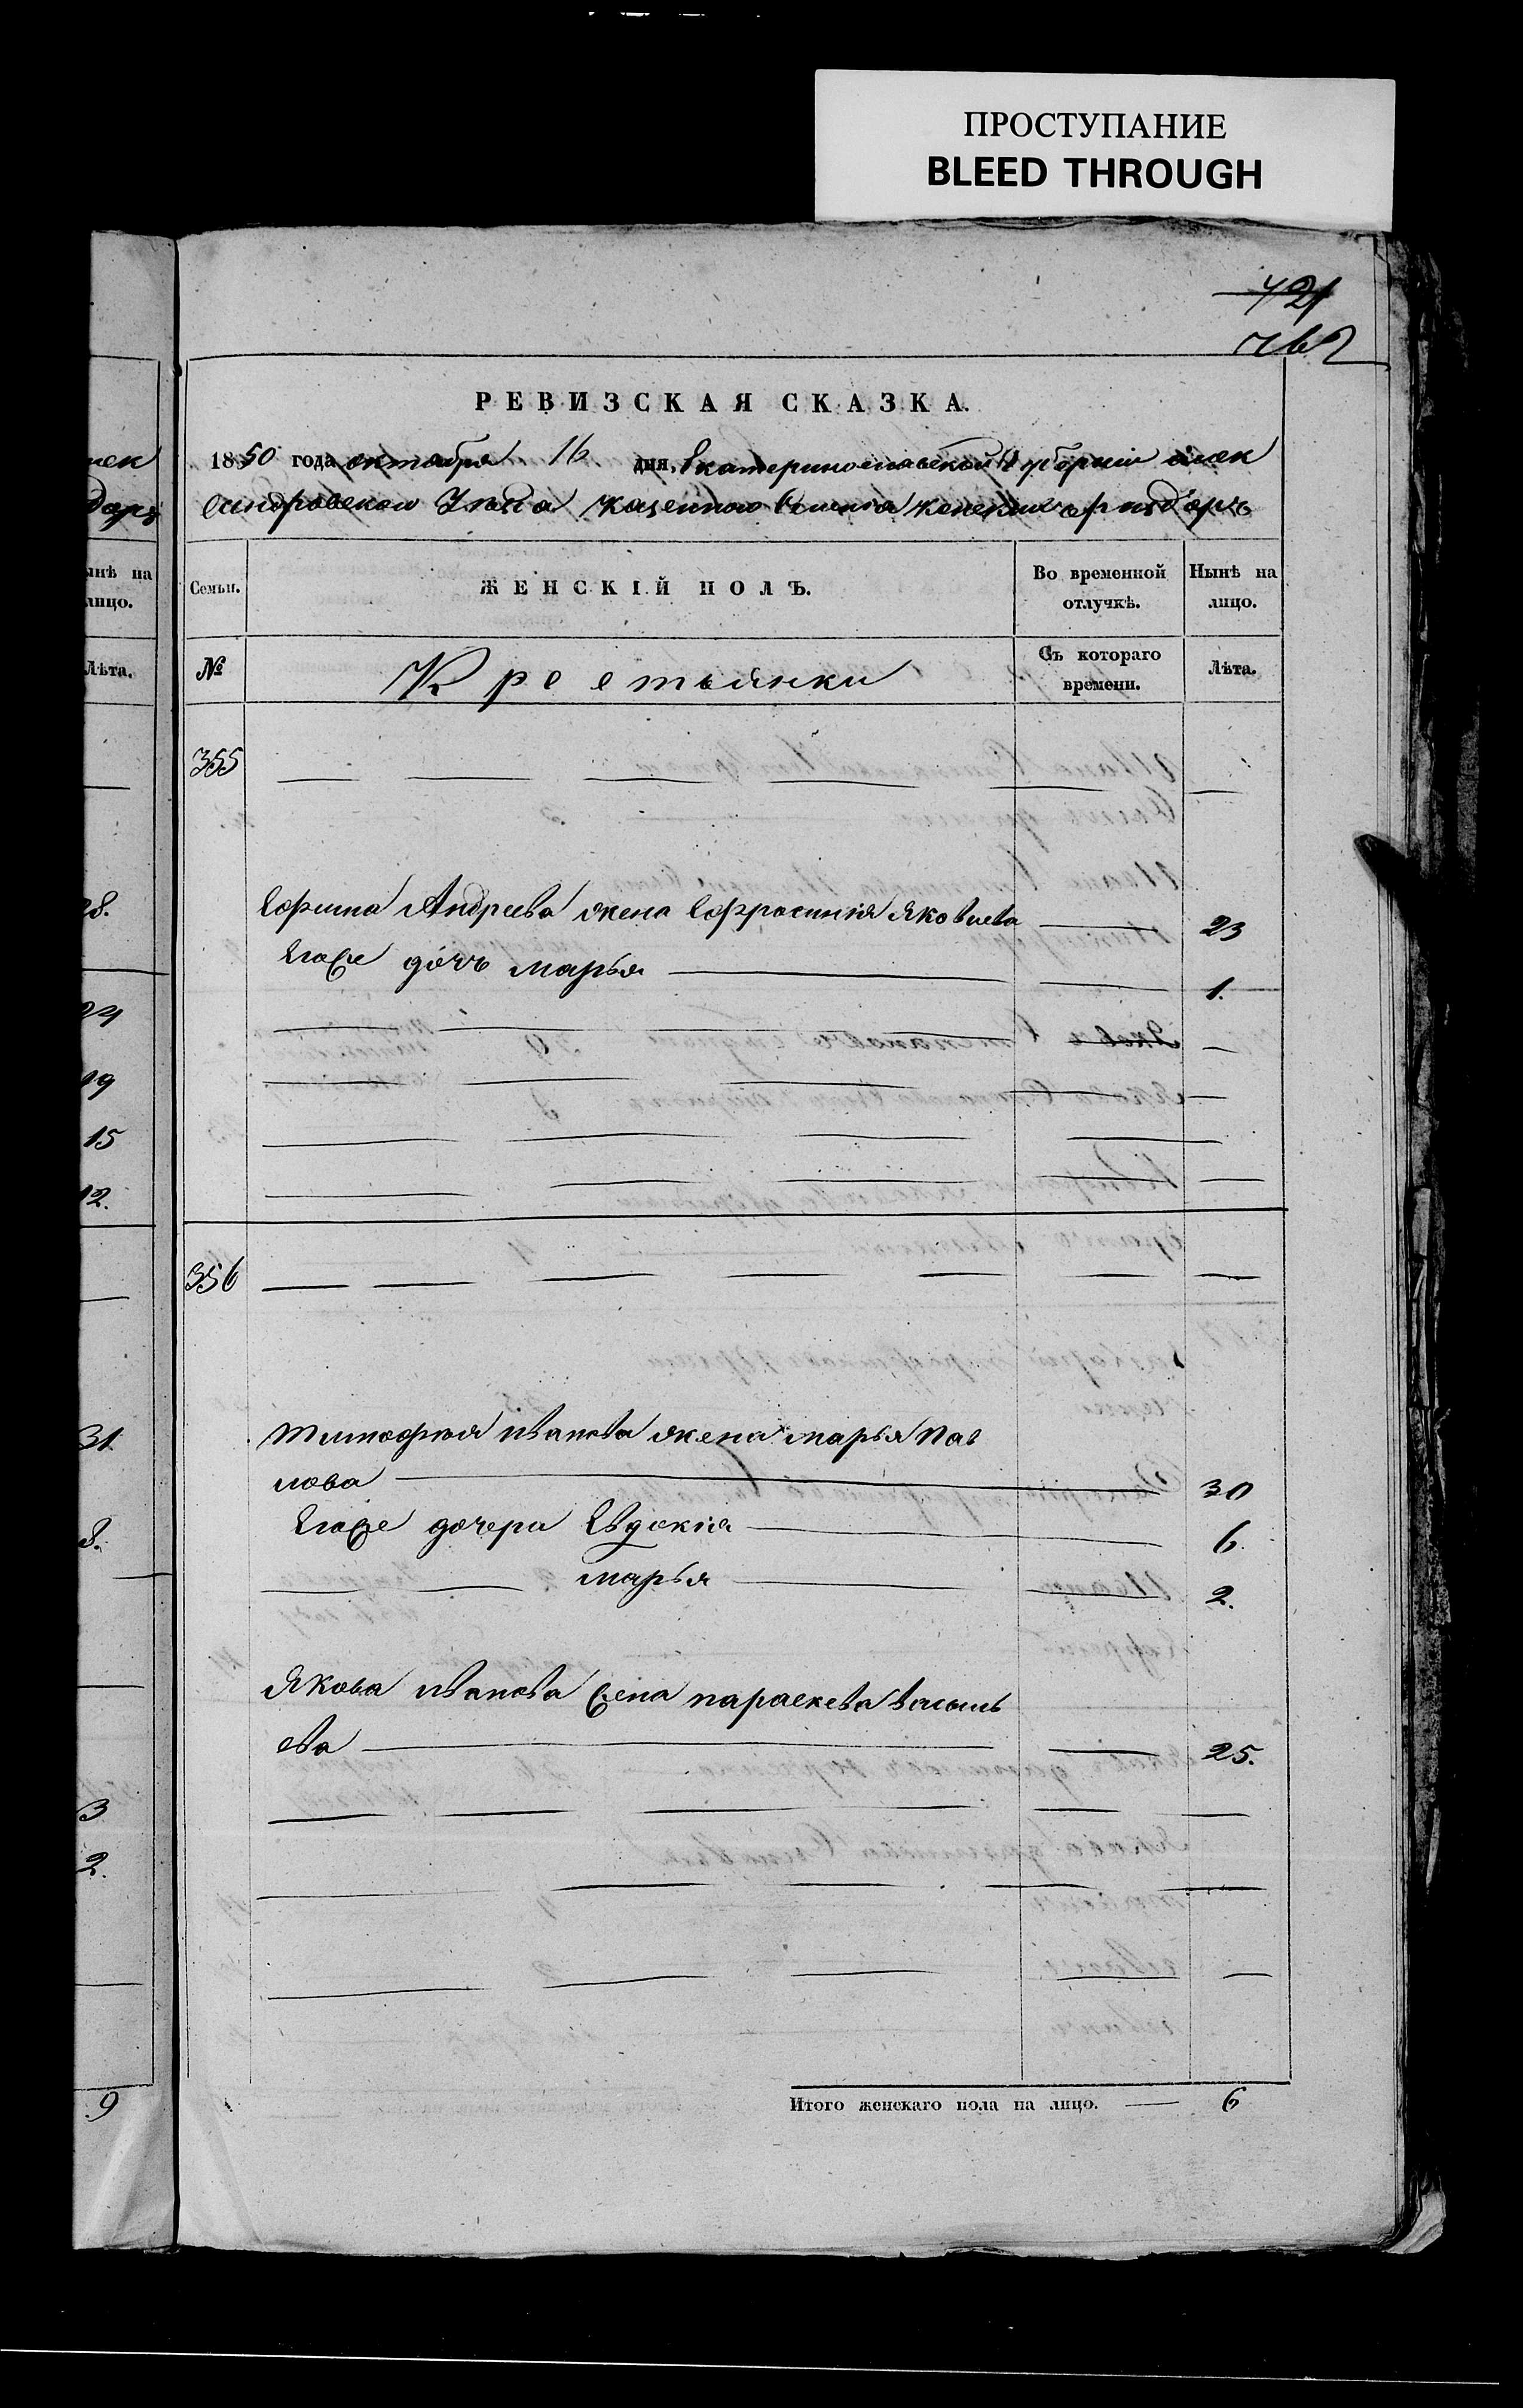 ПРОСТУПАНИЕ
BLEED THROUGH
421
РЕВИЗСКАЯ СКАЗКА.
1850 года октября 16 дня, Екатеринославской Губерніи Алек
сандровскои Уезда казенного Селенія конскихъ раздоръ
Семьи.
ЖЕНСКІЙ ПОЛЪ.
Во временной отлучкѣ.
Нынѣ на лицо.
№
Крестьянки
Съ котораго времени.
Лѣта.
355
Ефима Андреева жена Ефросинія Яковлева 23
Егоже дочь марья 1.
356
Тимофея иванова жена марья Пав
лова 30
Егоже дочери Евдокія 6.
марья 2.
Якова иванова жена параскева василь
ева 25.
Итого женскаго пола на лицо. 6
нѣ на
лицо.
Лѣта.
28.
24
19
15
12.
31
8.
3
2.
9